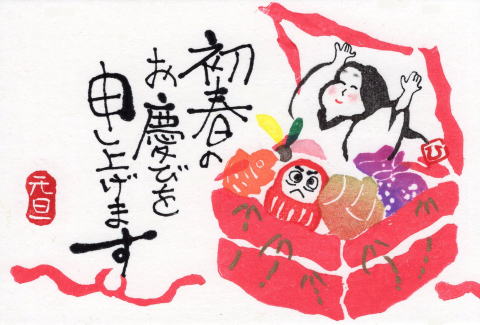 初春の
お慶びを
申し上げます
元旦
ひ